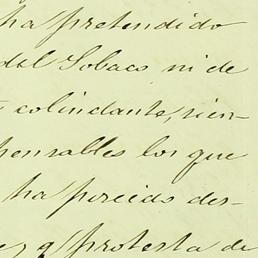 ha pretendido
del Tobaco ni de
colindante, sien-
pensalles los que
ha parecido des-
y protesta de